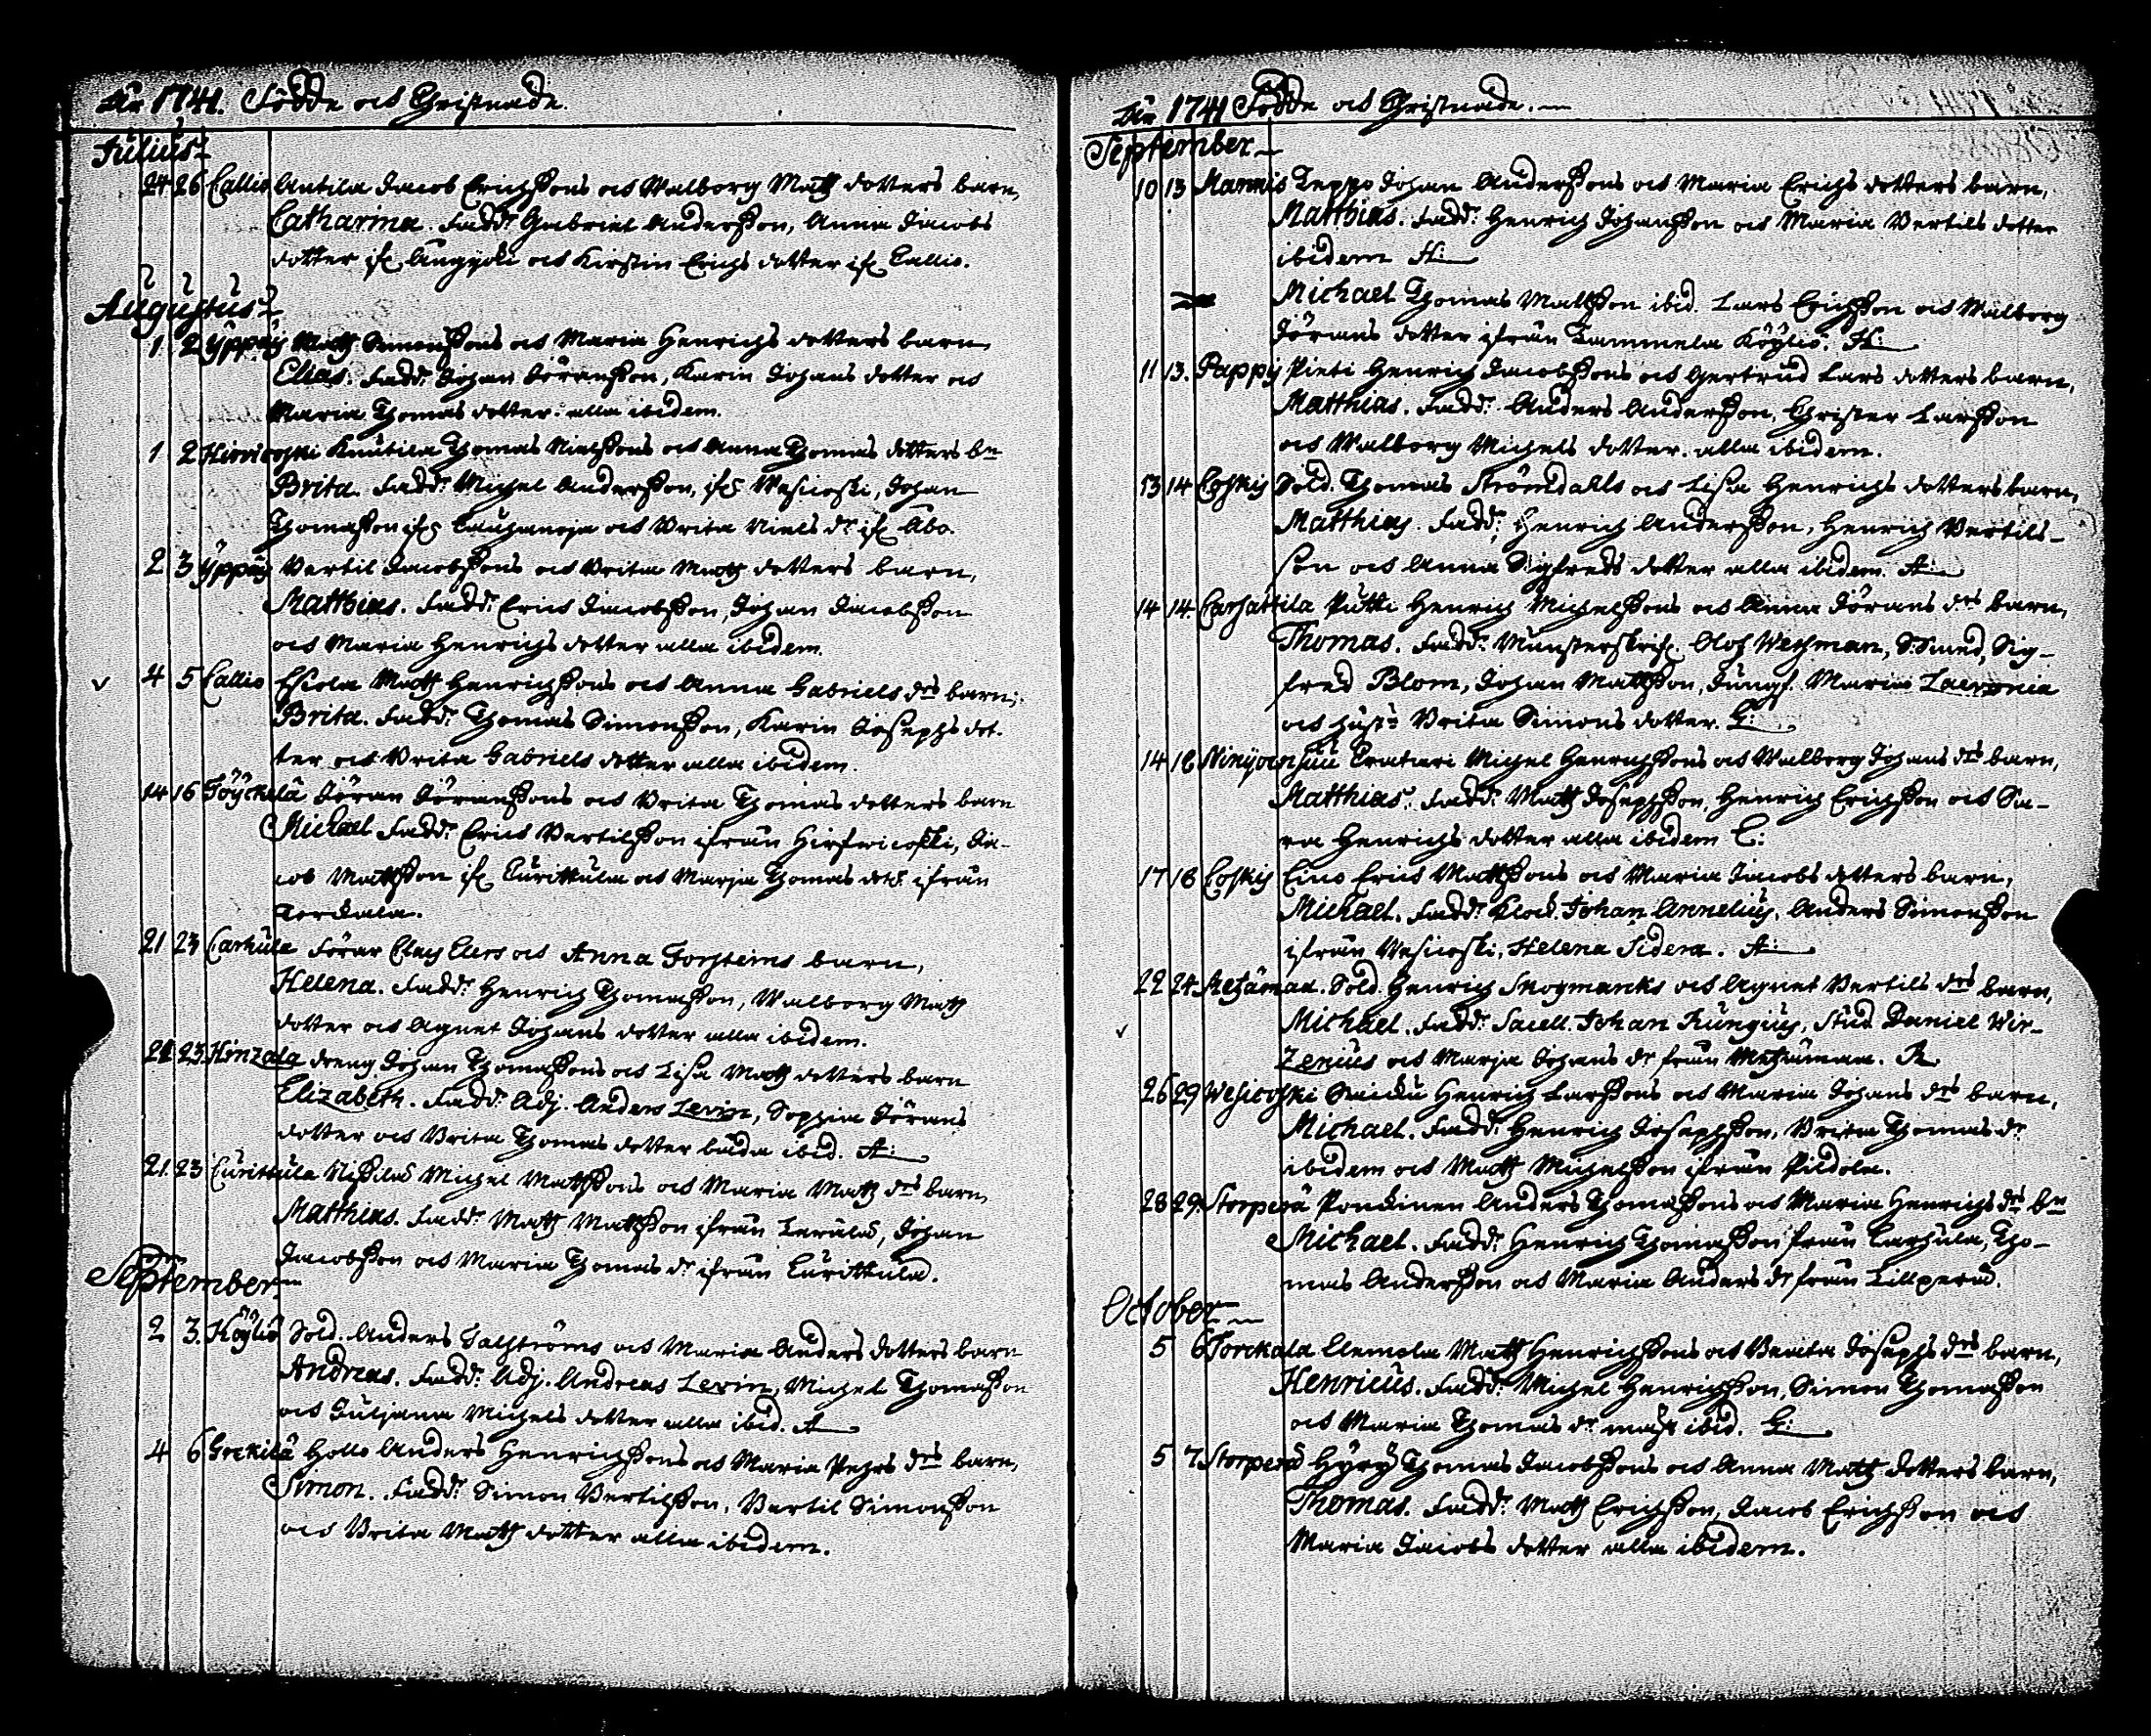 År 1741. Födde och Christnade.
Julius
24 26 Callio Antila Jacob Erichssons och Walborg Matts dotters barn,
Catharina. Fadd: Gabriel Andersson, Anna Jacobs
dotter if: och Kirstin Erichs dotter if: Callio.
Augustus
1 2 Yppäis Matts Simonssons och Maria Henrichs dotters barn
Elias. Fadd: Johan Göransson, Karin Johans dotter och
Maria Thomas dotter. alla ibidem.
1 2 Hirvicoski Knutila Thomas Nielssons och Anna Thomas dotters bn
Brita. Fadd: Michel Andersson, if: Vesicoski, Johan
Thomasson if: Lauhanoja och Brita Niels dr if: Åbo.
2 3 Yppäis Bertil Jacobssons och Brita Matts dotters barn,
Matthias. Fadd: Erich Jacobsson, Johan Jacobsson
och Maria Henrichs dotter alla ibidem.
4 5 Callio Eskola Matts Henrichssons och Anna Gabriels drs barn;
Brita. Fadd: Thomas Simonsson, Karin Josephs dot-
ter och Brita Gabriels dotter alla ibidem.
14 16 Töyckelä Göran Göranssons och Brita Thomas dotters barn
Michael Fadd: Erich Bertilsson ifrån Hirfwicoski, Ja-
cob Mattsson if: Curittula och Marja Thomas dotr ifrån
Torckala.
21 23 Carhula Förar Clas Elers och Anna Forsteins barn,
Helena. Fadd: Henrich Thomasson, Walborg Matts
dotter och Agnet Johans dotter alla ibidem.
21 23 Hinzala dreng Johan Thomassons och Lisa Matts dotters barn
Elizabeth. Fadd: Adj. Anders Levin, Sophia Görans
dotter och Brita Thomas dotter båda ibid. A:
21. 23 Curittula Michel Mattssons och Maria Matts drs barn,
Matthias. Fadd: Matts Mattsson ifrån Johan
Jacobsson och Maria Thomas dr ifrån Curittula.
September
2 3. Köyliö Sold. Anders Salströms och Maria Anders dotters barn
Andreas. Fadd: Adj. Andreas Levin, Michel Thomasson
och Juliana Michels dotter alla ibid. A
4 6 Greckilä Hollo Anders Henrichssons och Maria Pehrs drs barn,
Simon. Fadd: Simon Bertilsson, Bertil Simonsson
och Brita Matts dotter alla ibidem.
År 1741 Födde och Christnade.
September
10 13 Mannis Seppo Johan Anderssons och Maria Erichs dotters barn,
Matthias. Fadd: Henrich Johansson och Maria Bertils dotter
ibidem H:
Michael Thomas Mattsson ibid. Lars Erichsson och Walborg
Görans dotter ifrån Tammela Köyliö. H:
11 13. Pappis Pieti Henrich Jacobssons och Gertrud Lars dotters barn,
Matthias. Fadd: Anders Andersson, Christer Larsson
och Walborg Michels dotter. alla ibidem.
13 14 Coskis Sold. Thomas Strömdalls och Lisa Henrichs dotters barn,
Matthias. Fadd: Henrich Andersson, Henrich Bertils-
son och Anna Sigfreds dotter alla ibidem. A:
14 14. Carhattila Putti Henrich Michelssons och Anna Görans drs barn,
Thomas. Fadd: Munsterskrif. Olof Wechman, S:smed, Sig-
fred Blom, Johan Mattsson, Jungf. Maria Laevonia
och hust: Brita Simons dotter. L:
14 18 Ninijoensuu Cratiari Michel Henrichssons och Walborg Johans drs barn,
Matthias. Fadd: Matts Josephsson, Henrich Erichsson och Sa-
ra Henrichs dotter alla ibidem L:
17 18 Coskis Eino Erich Mattssons och Maria Jacobs dotters barn,
Michael. Fadd: Klock. Johan Annelius, Anders Simonsson
ifrån Vesicoski, Helena Sidera. A:
22 24 Metsämaa. Sold. Henrich Skogmanks och Agnet Bertils drs barn,
Michael. Fadd: Sacell. Johan Rungius, Stud Daniel Wir-
zenius och Marja Johans dr från Metsämaa. R
26 29 Wesicoski Henrich Larssons och Maria Johans drs barn,
Michael. Fadd: Henrich Josephsson, Brita Thomas dr
ibidem och Matts Michelsson ifrån Pildola.
28 29. Storperä Ponckinen Anders Thomassons och Maria Henrichs drs bn
Michael. Fadd: Henrich Thomasson från Carhula, Tho-
mas Andersson och Maria Anders dr från Lillperä.
October
5 6 Torckala Clemola Matts Henrichssons och Beata Josephs drs barn,
Henricus. Fadd: Michel Henrichsson, Simon Thomasson
och Maria Thomas dr ibid. L:
5 7. Storperä Hyrÿ Thomas Jacobssons och Anna Matts dotters barn,
Thomas. Fadd: Matts Erichsson, Jacob Erichsson och
Maria Jacobs dotter alla ibidem.